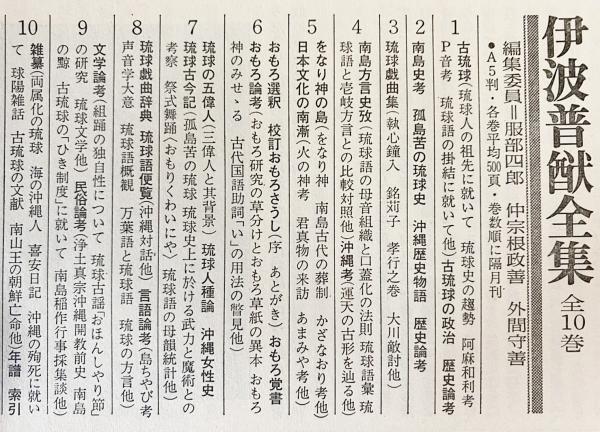 伊波普猷全集 全10巻
編集委員＝服部四郎 仲宗根政善 外間守善
●A5判・各巻平均500頁・巻数順に隔月刊
1 古琉球(琉球人の祖先に就いて 琉球史の趨勢 阿麻和利考
P音考 琉球語の掛結に就いて他)古琉球の政治 歴史論考
2 南島史考 孤島苦の琉球史 沖縄歴史物語 歴史論考
3 琉球戯曲集(執心鐘入 銘苅子 孝行之巻 大川敵討他)
4 南島方言史攷(琉球語の母音組織と口蓋化の法則 琉球語彙 琉
球語と壱岐方言との比較対照他)沖縄考(運天の古形を辿る他)
5 をなり神の島(をなり神 南島古代の葬制 かざなおり考他)
日本文化の南漸(火の神考 君真物の来訪 あまみや考他)
6 おもろ選釈 校訂おもろさうし(序 あとがき)おもろ覚書
おもろ論考(おもろ研究の草分けとおもろ草紙の異本 おもろ
神のみせゝる 古代国語助詞「い」の用法の瞥見他)
7 琉球の五偉人(三偉人と其背景) 琉球人種論 沖縄女性史
琉球古今記(孤島苦の琉球 琉球史上に於ける武力と魔術との
考察 祭式舞踊(おもりくわいにや) 琉球語の母韻統計他)
8 琉球戯曲辞典 琉球語便覧(沖縄対話他) 言語論考(島ちやび考
声音学大意 琉球語概観 万葉語と琉球語 琉球の方言他)
9 文学論考(組踊の独自性について 琉球古謡「おほんしやり節」
の研究 琉球文学他)民俗論考(浄土真宗沖縄開教前史 南島
の黥 古琉球の「ひき制度」に就いて 南島稲作行事採集談他)
10 雑纂(両属化の琉球 海の沖縄人 喜安日記 沖縄の殉死に就い
て 球陽雑話 古琉球の文献 南山王の朝鮮亡命他)年譜 索引